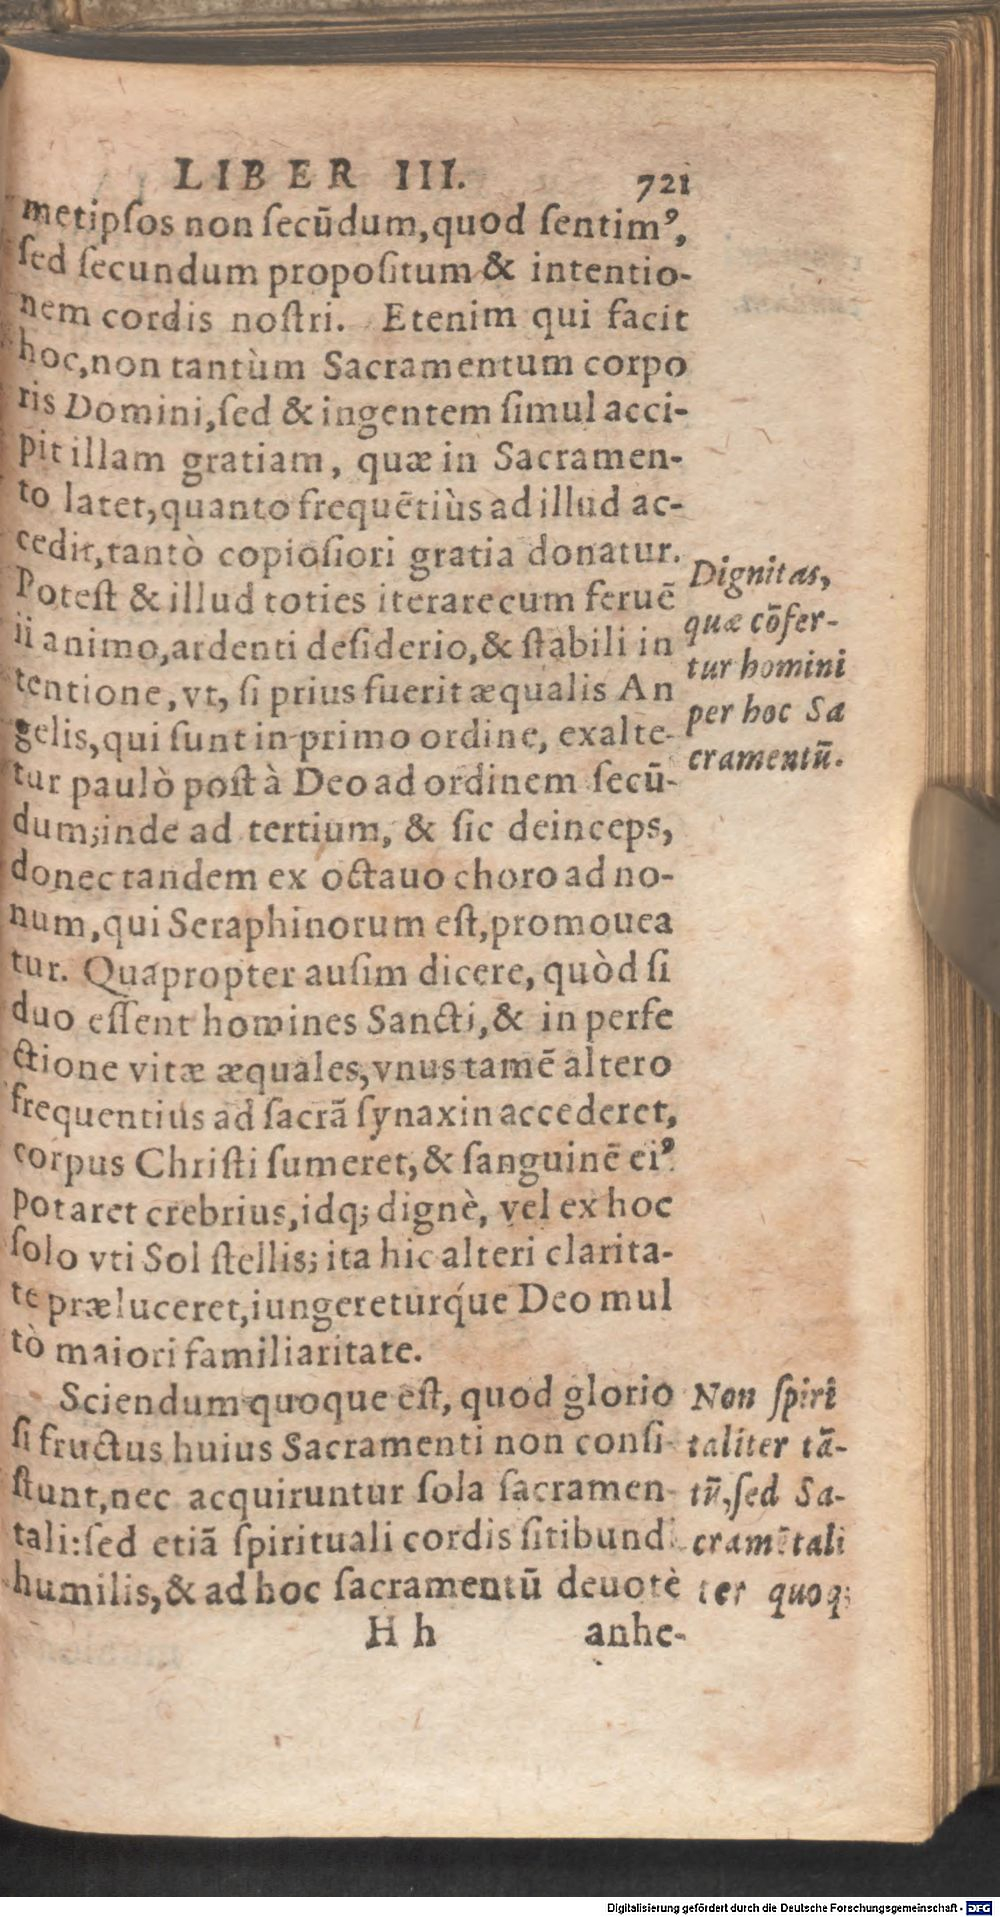 LIBER III. 721
metipsos non secūdum,quod sentimꝰ,
sed secundum propositum & intentio-
nem cordis nostri. Etenim qui facit
hoc,non tantùm Sacramentum corpo
ris Domini,sed & ingentem simul acci-
pit illam gratiam, quæ in Sacramen-
to latet,quanto frequētiùs ad illud ac-
cedit,tantò copiosiori gratia donatur.
Potest & illud toties iterare cum feruē
ti animo,ardenti desiderio,& stabili in
tentione,vt, si prius fuerit æqualis An
gelis,qui sunt in primo ordine, exalte-
tur paulò post à Deo ad ordinem secū-
dum;inde ad tertium, & sic deinceps,
donec tandem ex octauo choro ad no-
num,qui Seraphinorum est,promouea
tur. Quapropter ausim dicere,quòd si
duo essent homines Sancti,& in perfe
ctione vitæ æquales,vnus tamē altero
frequentius ad sacrā synaxin accederet,
corpus Christi sumeret,& sanguinē eiꝰ
potaret crebrius,idq; dignè, vel ex hoc
solo vti Sol stellis; ita hic alteri clarita-
te præluceret,iungereturq́ue Deo mul
tò maiori familiaritate.
Sciendum quoque est, quod glorio
si fructus huius Sacramenti non consi-
stunt,nec acquiruntur sola sacramen-
tali:sed etiā spirituali cordis sitibundi
humilis,& ad hoc sacramentū deuotè
H h anhe-
Dignitas,
quæ cōfer-
tur homini
per hoc Sa
cramentū.
Non spiri
taliter tā-
tū,sed Sa-
cramētali
ter quoq;
Digitalisierung gefördert durch die Deutsche Forschungsgemeinschaft - DFG